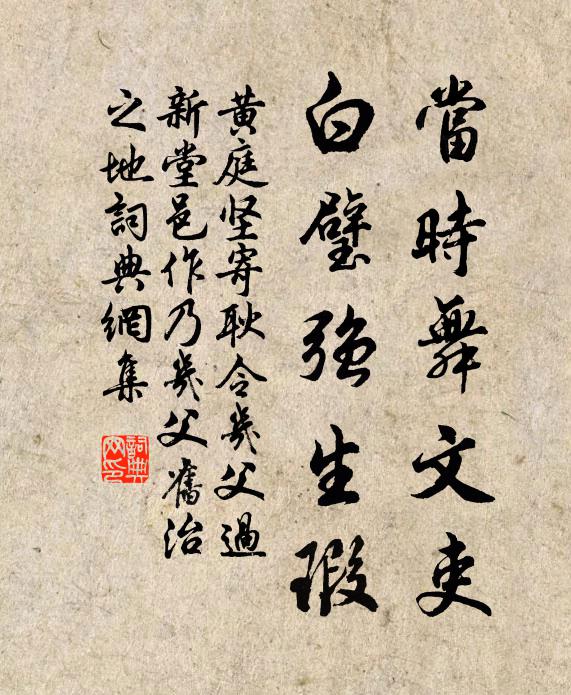 當時舞文吏
白璧強生瑕
黄庭坚寄耿令幾父過
新堂邑作乃幾父舊治
之地詞典網集
詞典
网印